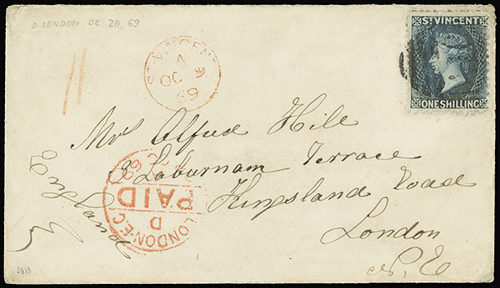 LONDON OC 28, 69
ST. VINCENT
A
OC 9
69
ST VINCENT
ONE SHILLING
Mr Alfred Hill
3 Laburnam Terrace
Kingsland Road
London
N. E
LONDON-E.C
PAID
D
69